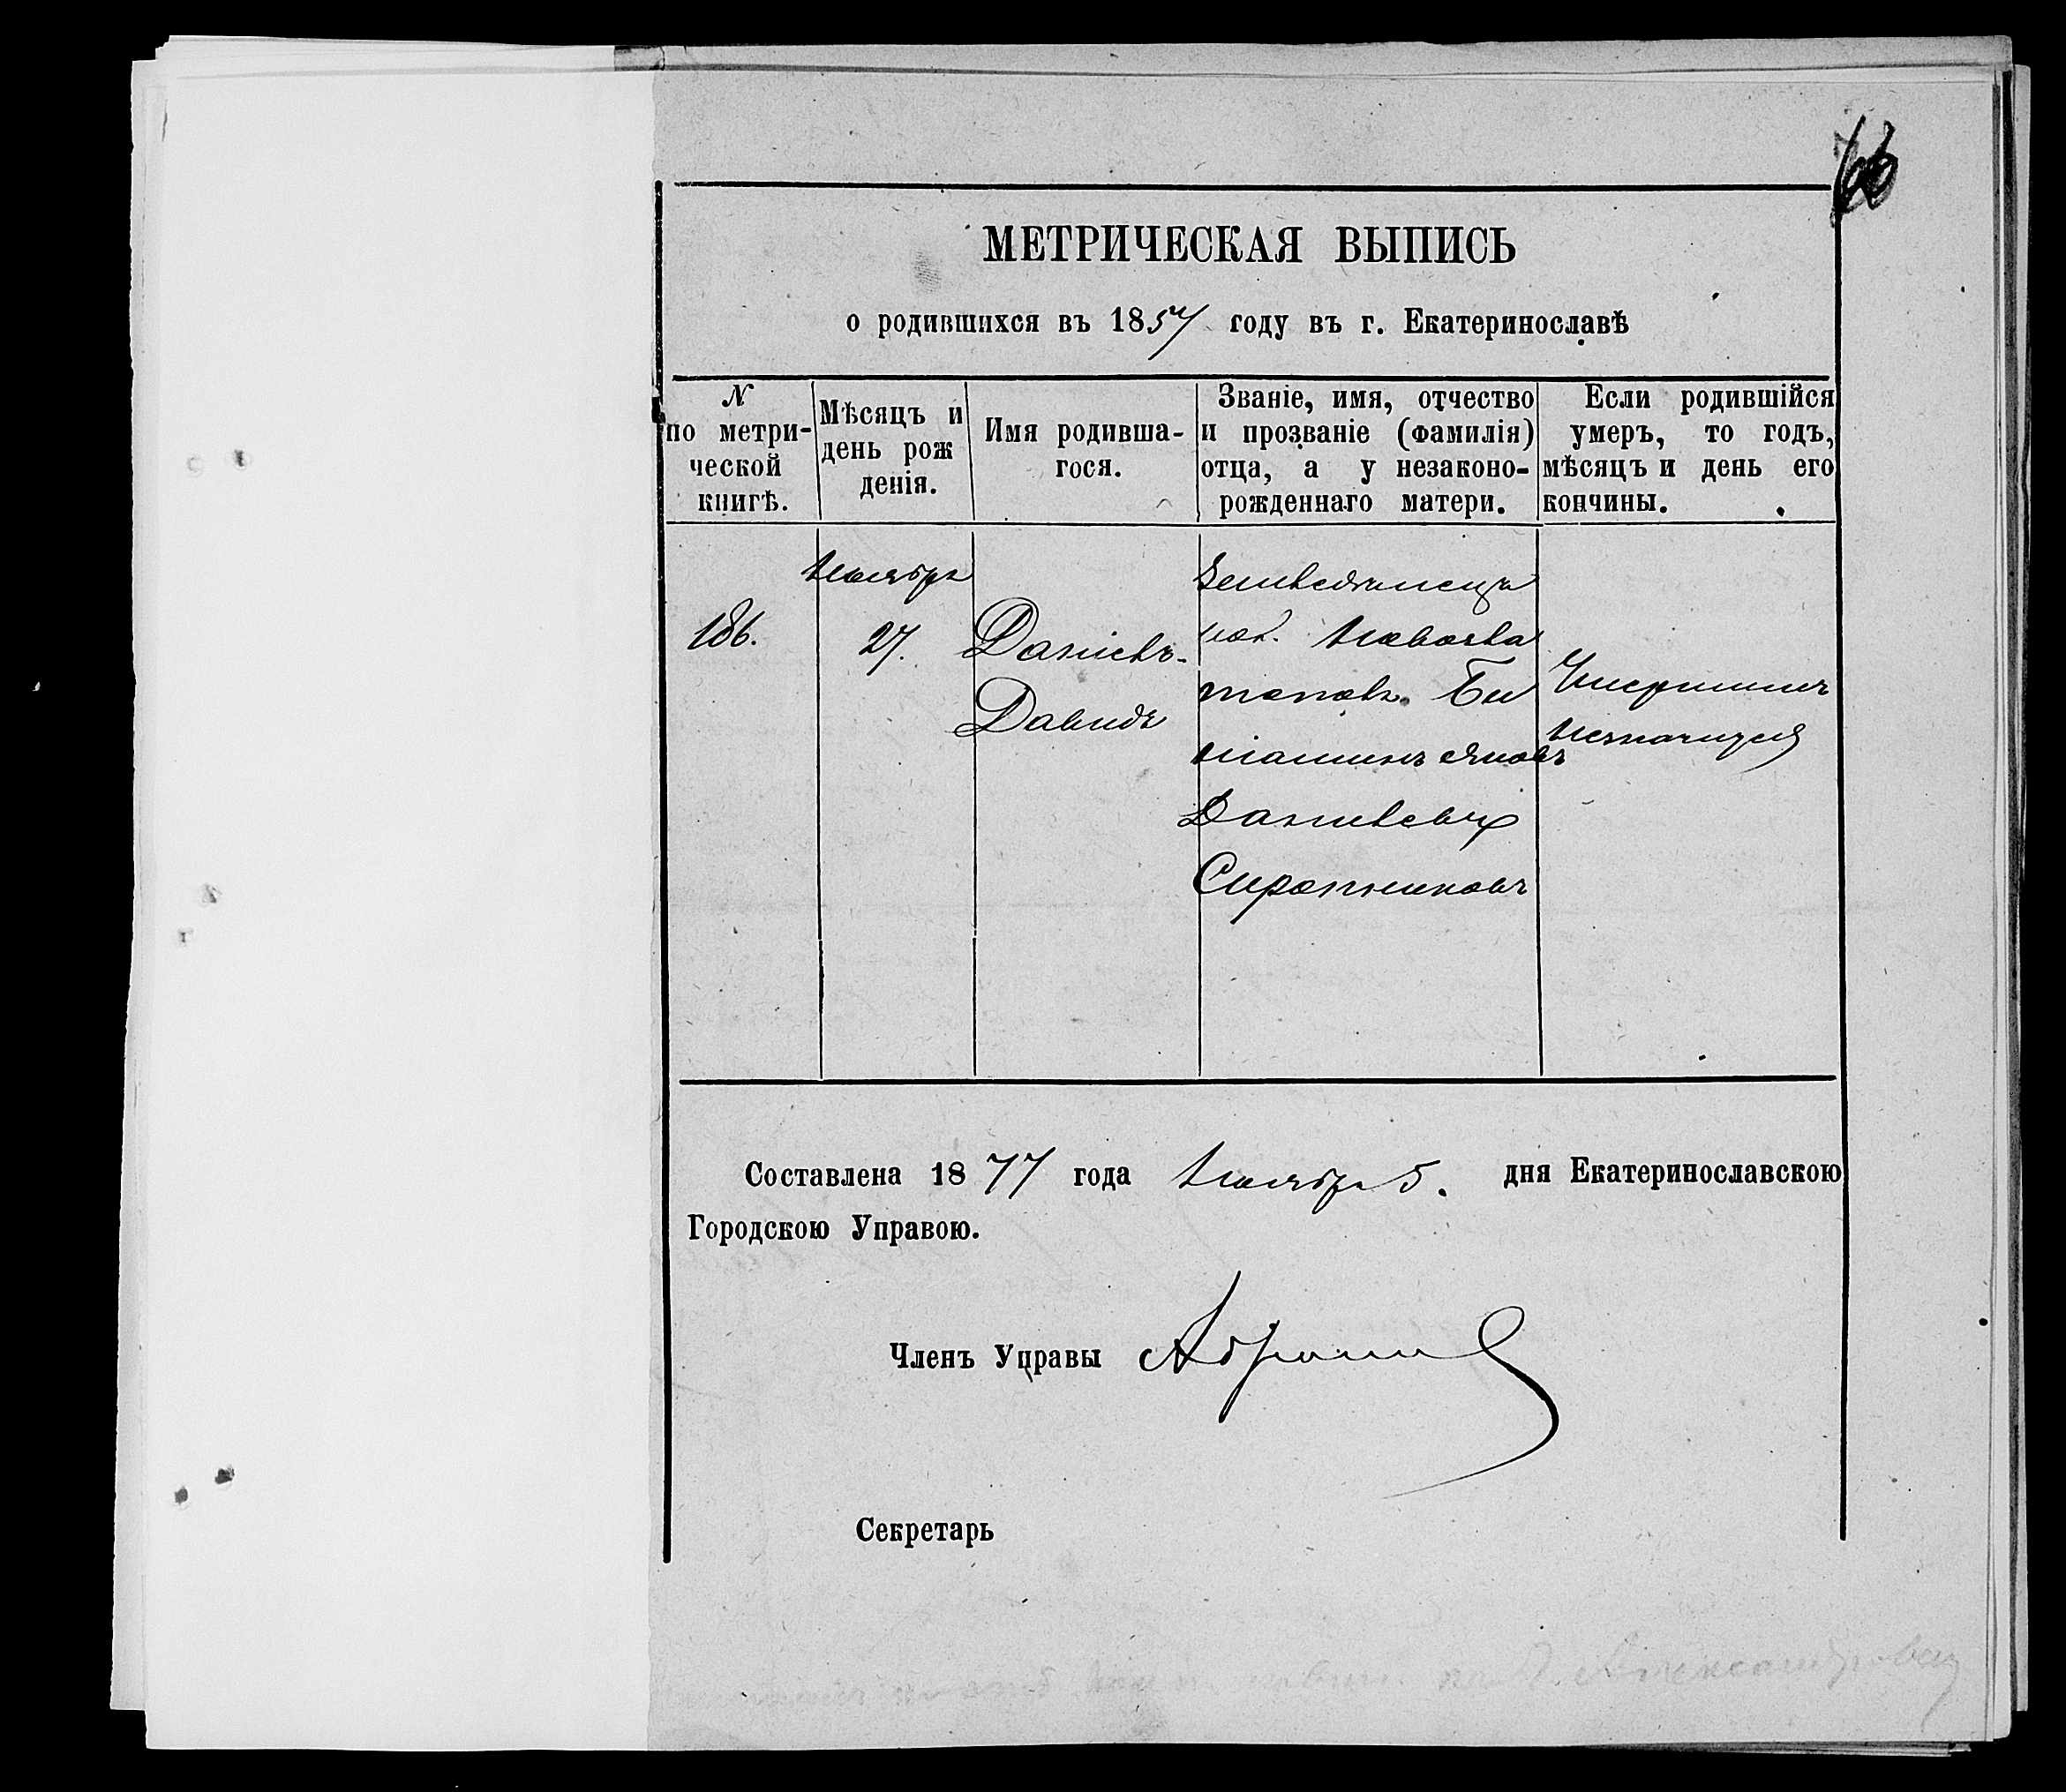 МЕТРИЧЕСКАЯ ВЫПИСЬ
о родившихся въ 1857 году въ г. Екатеринославѣ
N по метрической книгѣ.
Мѣсяцъ и день рож денія.
Имя родившагося.
Званіе, имя, отчество и прозваніе (фамилія) отца, а у незаконорожденнаго матери.
Если родившійся умеръ, то годъ, мѣсяцъ и день его кончины.
186.
Ноября
27.
Даніелъ-
Давидъ
Земледѣлецъ
кол. Новозла
тополь. Бе
ніаминъ
Даніелевъ
Сиротниковъ
Умершимъ
незначится
Составлена 1877 года Ноября 5. дня Екатеринославскою
Городскою Управою.
Членъ Управы
Секретарь